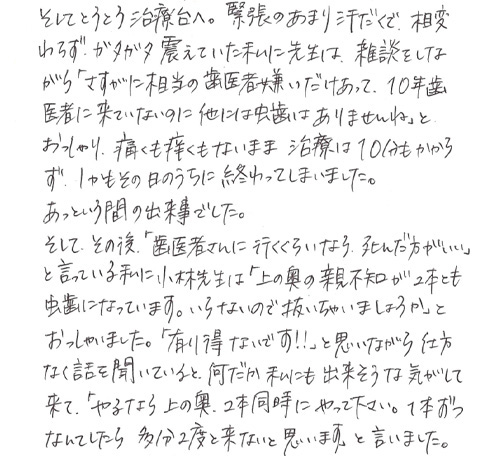 そしてとうとう治療台へ。緊張のあまり汗だくで、相変
わらず、ガタガタ震えていた私に先生は、雑談をしな
がら「さすがに相当の歯医者嫌いだけあって、10年歯
医者に来ていないのに他には虫歯はありませんね」と
おっしゃり、痛くも痒くもないまま治療は10分もかから
ず、しかもその日のうちに終わってしまいました。
あっという間の出来事でした。
そして、その後、「歯医者さんに行くくらいなら、死んだ方がいい」
と言っている私に小林先生は「上の奥の親不知が2本とも
虫歯になっています。いらないので抜いちゃいましょうか」と
おっしゃいました。「有り得ないです!!」と思いながら仕方
なく話を聞いていると、何だか私にも出来そうな気がして
来て、「やるなら上の奥、2本同時にやって下さい。1本ずつ
なんてしたら多分2度と来ないと思います」と言いました。